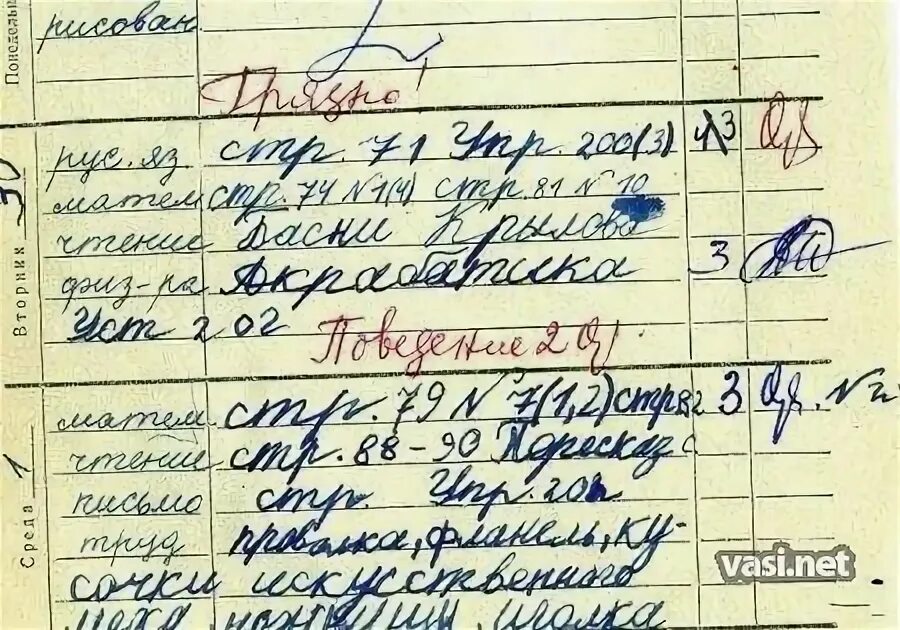 Понедельн
рисован.
Грязно!
Вторник 30
рус. яз стр. 71 Упр. 200(3) 3
матем стр. 74 №1(4) стр. 81 № 10
чтение Басни Крылова
физ-ра Акрабатика 3
Уст 202
Поведение 2
Среда 1
матем. стр. 79 № 7(1,2) стр 82 3 №
чтение стр. 88-90 Пересказ
письмо стр. Упр. 202
труд проволка, фланель, ку-
сочки искусственного
меха, ножницы, иголка
vasi.net